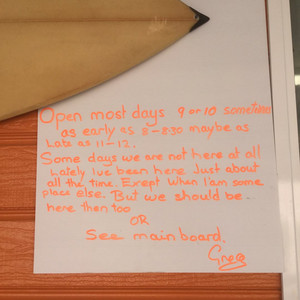 Open most days 9 or 10 sometimes
as early as 8-8:30 maybe as
Late as 11-12.
Some days we are not here at all
Lately I've been here Just about
all the time. Exept when I am some
place else. But we should be.
here then too
OR
See main board.
Greg